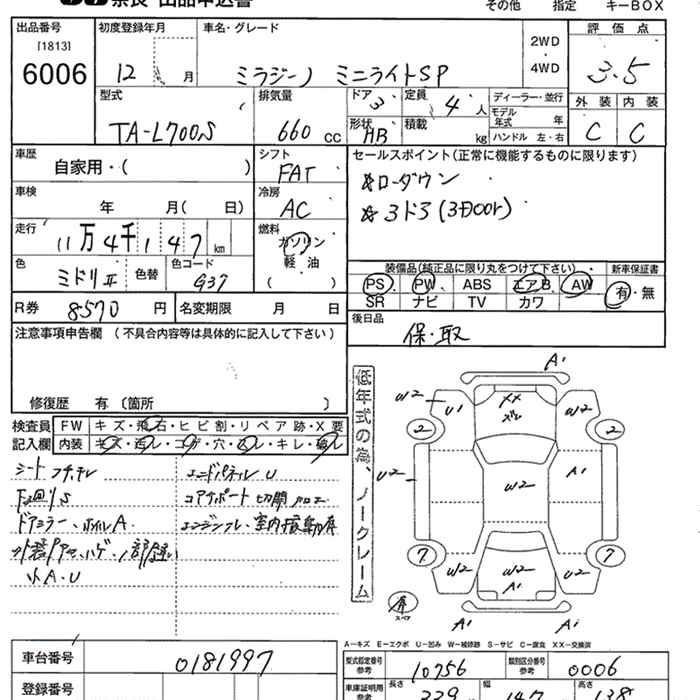 奈良 出品申込書 その他 指定 キーBOX
出品番号 初度登録年月 車名・グレード 評価点
[1813] 2WD
6006 12 月 ミラジーノ ミニライトSP ・4WD 3.5
型式 排気量 ドア 3 定員 4 人 ディーラー・並行 外装 内装
モデル年式 年
TA-L700S 660 cc 形状 HB 積載 kg ハンドル 左・右 C C
車歴 シフト セールスポイント(正常に機能するものに限ります)
自家用・( ) FAT
車検 冷房 ☆ローダウン
年 月( 日) AC ☆3ドア(3door)
走行 燃料
11万4千147 km ガソリン
色 色替 色コード 軽油 装備品(純正品に限り丸をつけて下さい)・ 新車保証書
ミドリII G37 ( ) PS PW ABS エアB AW 有・無
SR ナビ TV カワ
R券 8570 円 名変期限 月 日 後日品
注意事項申告欄 (不具合内容等は具体的に記入して下さい) 保・取
修復歴 有〔箇所 〕
検査員 FW キズ・飛石・ヒビ割・リペア跡・X要
記入欄 内装 キズ・汚レ・コゲ・穴・スレ・キレ・臭レ
シート エンドパネルU
下回りS コアサポート切開加工
ドアミラー、ホイルA エンジン 室内
小A・U
低年式の為、ノークレーム
A1
W2 U1 XX W2
2 2
U2 W2 A1
7 7
W2 W2 A1 U2
スペア A1 A1
A-キズ E-エクボ U-凹み W-補修跡 S-サビ C-腐食 XX-交換済
車台番号 0181997 型式指定番号 参考 10756 類別区分番号 参考 0006
登録番号 車庫証明用 参考 長さ 339 幅 147 高さ 138